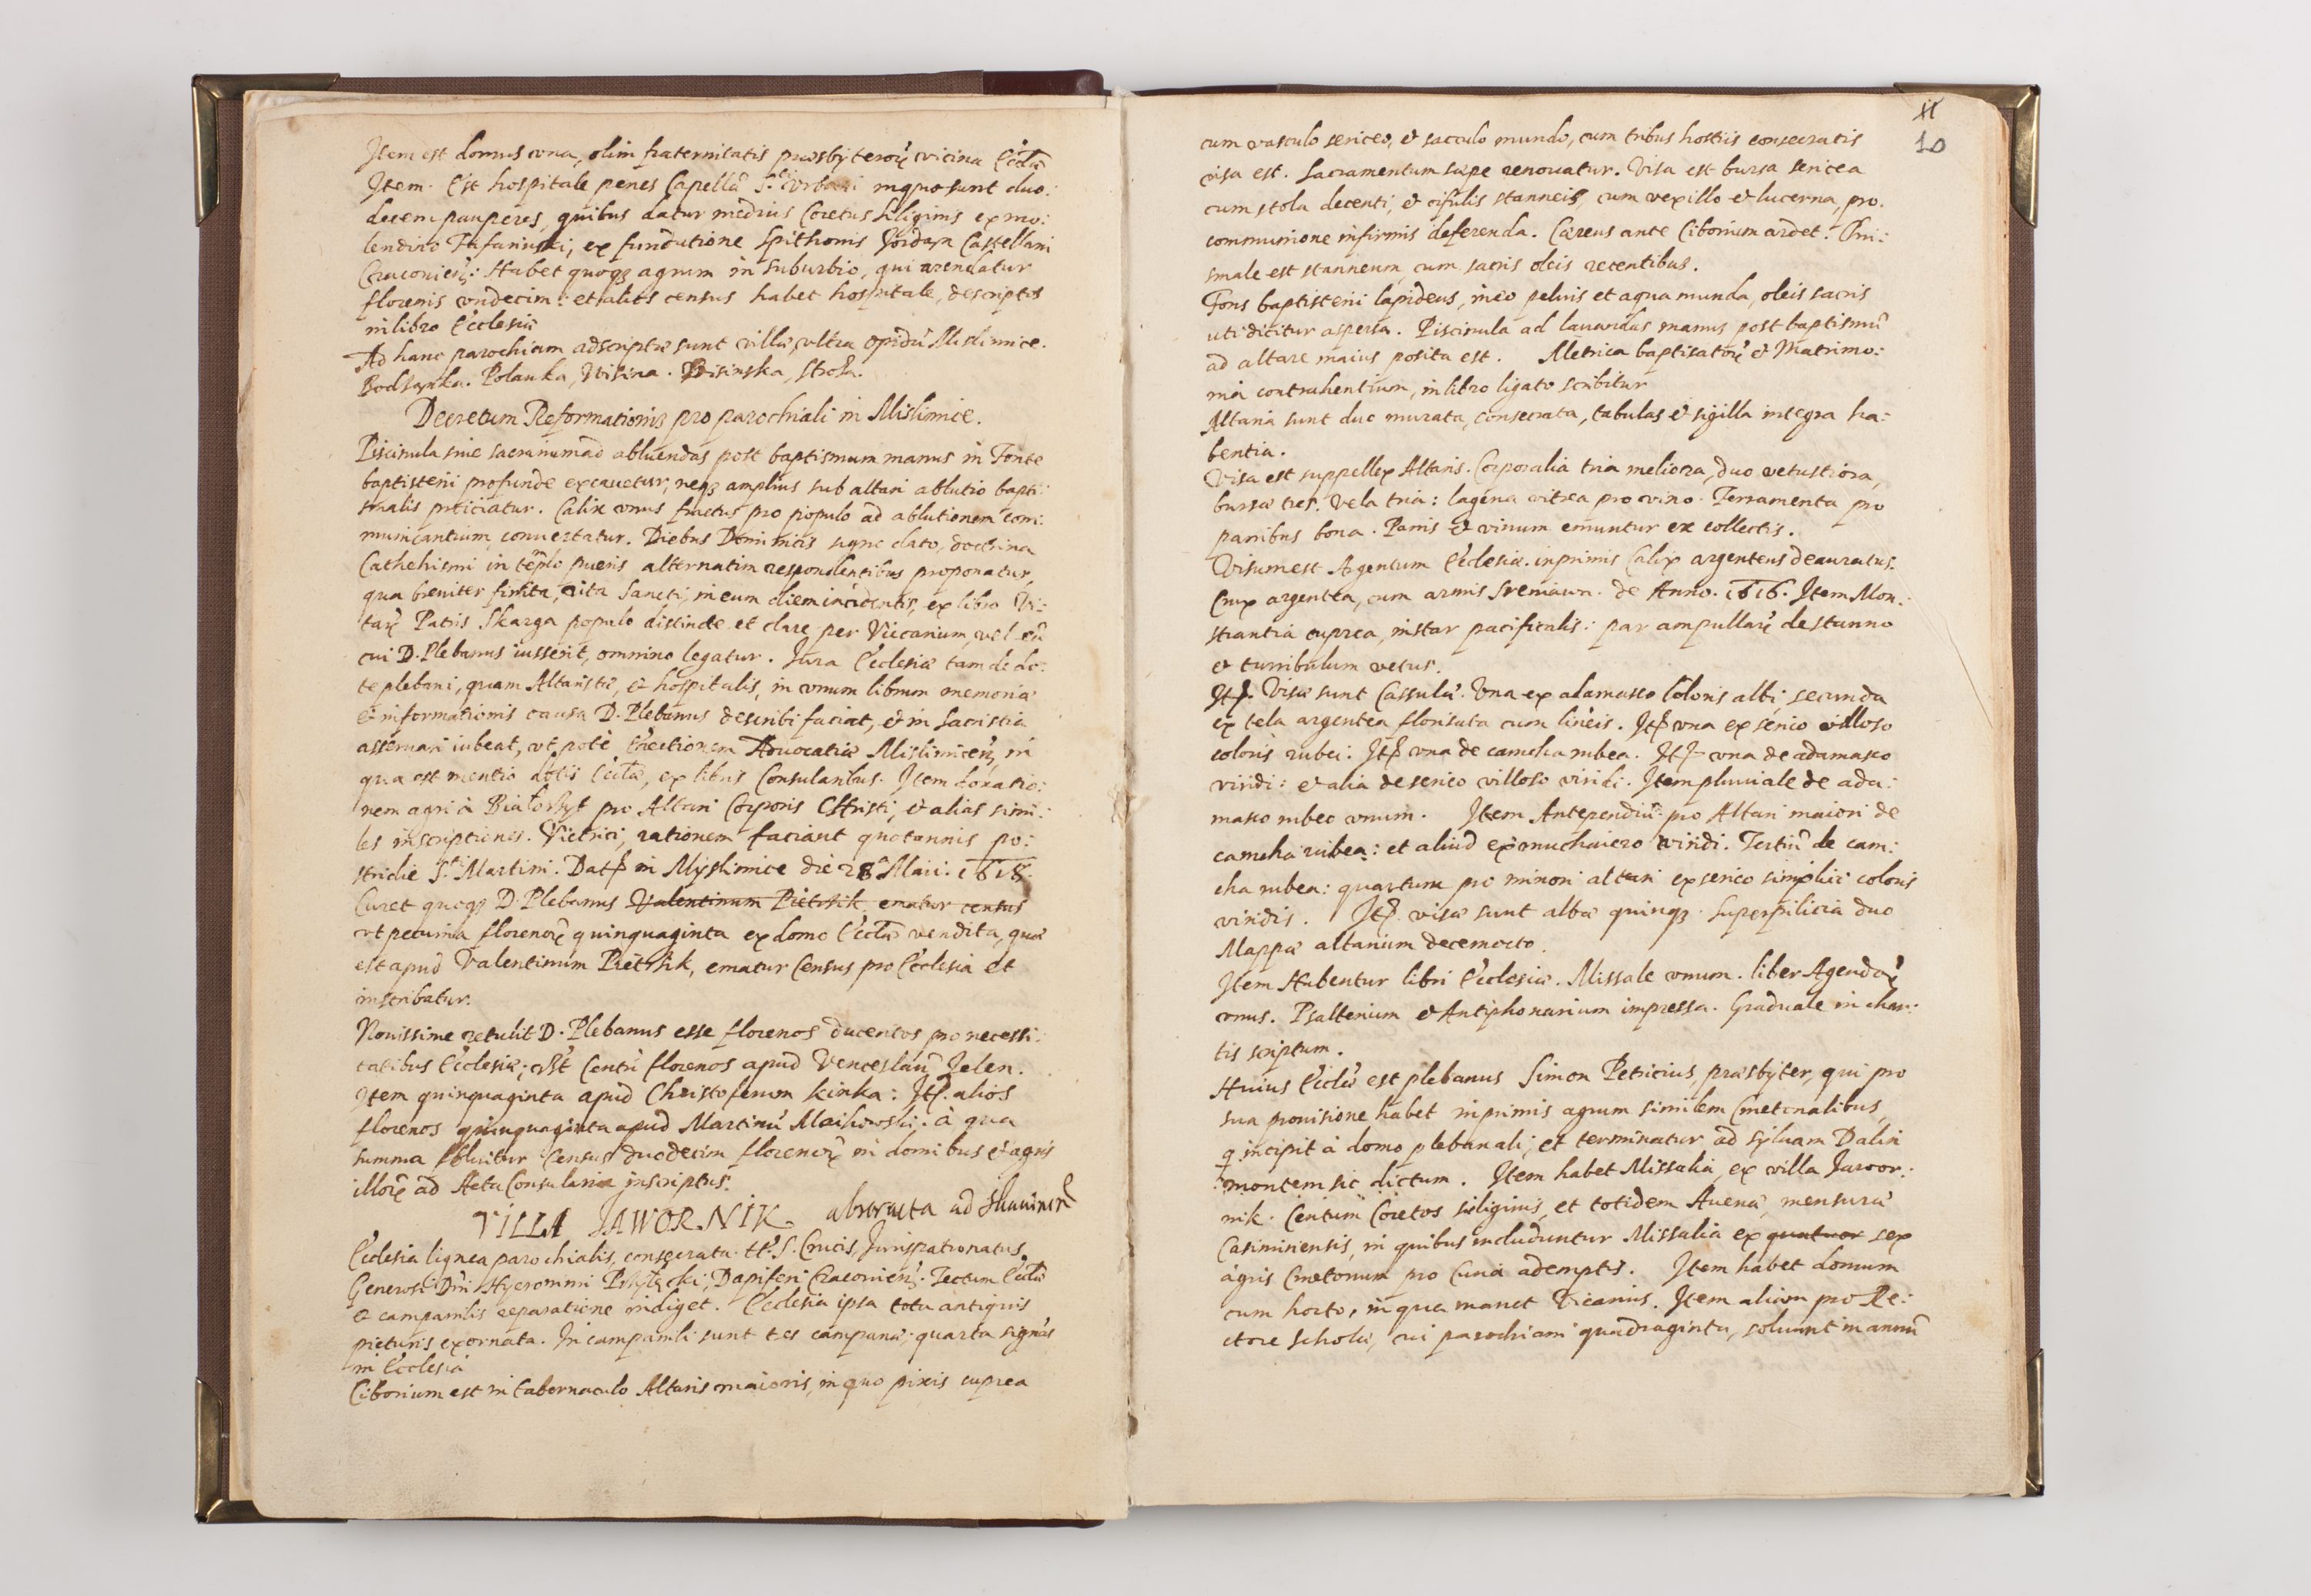 Item est domus vna, olim fraternitatis præsbyterorũ vicina Eccłæ
Item. Est hospitale penes Capellã S.ti Vrbani in quo sunt duo:
decem pauperes, quibus datur medius Coretus siliginis ex mo:
lendino, ex fundatione Spithonis Jordan Castellani
Cracouien̄: Habet quoqȝ agrum in suburbio, qui arendatur
florenis vndecim: et alios census habet hospitale, descriptos
in libro Ecclesiæ
Ad hanc parochiam adscriptæ sunt villæ, vltra opidũ Mislimice.
Bodsanka. Polanka, Wisina. Stroza.
Decretum Reformationis pro parochiali in Mislimice.
Piscinula siue sacrarium ad abluendas post baptismum manus in Fonte
baptisterii profunde excauetur, neqȝ amplius sub altari ablutio bapti:
smalis proiiciatur. Calix vnus fractus pro populo ad ablutionem com:
municantium, conuertatur. Diebus Dominicis signo dato, doctrina
Cathehismi in tẽplo pueris alternatim respondentibus proponatur,
qua breuiter finita, vita Sancti, in eum diem incidentis, ex libro Vi:
tarũ Patris Skarga populo distincte et clare per Vicarium, vel
cui D. Plebanus iusserit, omnino legatur. Jura Ecclesiæ tam de do:
te plebani, quam Altaristæ, et hospitalis, in vnum librum memoriæ
et informationis causa D. Plebanus describi faciat, et in Sacristia
asseruari iubeat, vt potè Erectionem Aduocatiæ Mislimicen̄, in
qua est mentio dotis Eccłæ, ex libris Consularibus. Item donatio:
nem agri à Białobrzyt pro Altari Corporis Christi, et alias simi:
les inscriptiones. Vitrici, rationem faciant quotannis po:
stridie S.ti Martini. Dat in Myslimice die 28 Maii. 1618.
Curet quoqȝ D. Plebanus Valentinum Pietrzik, ematur census
vt pecunia florenorũ quinquaginta ex domo Eccłæ vendita, quæ
est apud Valentinum Pietrzik, ematur Census pro Ecclesia et
inscribatur.
Nouissime retulit D. Plebanus esse florenos ducentos pro necessi:
tatibus Ecclesiæ; Centũ florenos apud Venceslaũ Jelen.
Item quinquaginta apud Christoferum Kinka: Itē. alios
florenos quinquaginta apud Martinũ: à qua
summa soluitur Census duodecim florenorũ in domibus et agris
illorũ ad Acta Consularia inscriptus.
VILLA JAWORNIK. abstracta ad
Ecclesia lignea parochialis, consecrata. tt. S. Crucis, Jurispatronatus
Generosi Dñi Hyeronimi, Dapiferi Cracouien̄. Tectum Eccłæ
et campanilis reparatione indiget. Ecclesia ipsa tota antiquis
picturis exornata. In campanili sunt tres campanæ; quarta signũs
in Ecclesia
Ciborium est in tabernaculo Altaris maioris, in quo pixis cuprea
11
10
cum vasculo sericeo, et sacculo mundo, cum tribus hostiis consecratis
visa est. Sacramentum sæpe renouatur. Visa est bursa sericea
cum stola decenti, et cifulis stanneis, cum vexillo et lucerna, pro.
communione infirmis deferenda. Cæreus ante Ciborium ardet. Cris:
smale est stanneum cum sacris oleis recentibus.
Fons baptisterii lapideus, in eo peluis et aqua munda, oleis sacris
uti dicitur aspersa. Piscinula ad lauandas manus post baptismũ
ad altare maius posita est. Metrica baptisatorũ et Matrimo:
nia contrahentium, in libro ligato scribitur
Altaria sunt duo murata, consecrata, tabulas et sigilla integra ha:
bentia.
Visa est suppellex Altaris. Corporalia tria meliora, duo vetustiora,
bursæ tres. Vela tria: lagena vitrea pro vino. Ferramenta pro
panibus bona. Panis et vinum emuntur ex collectis.
Visum est Argentum Ecclesiæ. inprimis Calix argenteus deauratus.
Crux argentea, cum armis Sreniawa. de Anno. 1616. Item Mon:
strantia cuprea, instar pacificalis: par ampullarũ de stanno
et turribulum vetus.
Itē. Visæ sunt Cassulæ. Vna ex adamasco Coloris albi, secunda
ex tela argentea florisata cum lineis. Itē vna ex serico villoso
coloris rubei. Itē vna de camcha rubea. Itē vna de adamasco
viridi: et alia de serico villoso viridi. Item pluuiale de ada:
masco rubeo vnum. Item Antependiũ pro Altari maiori de
camcha rubea: et aliud ex muchaiero viridi. Tertiũ de cam:
cha rubea: quartum pro minori altari ex serico simplici coloris
viridis. Itē. visæ sunt albæ quinqȝ. Superpilicia duo
Mappæ altarium decem octo.
Item Habentur libri Ecclesiæ. Missale vnum. liber Agendarũ
vnus. Psalterium et Antiphonarium impressa. Graduale in char:
tis scriptum.
Huius Eccłæ est plebanus Simon Petricius, præsbyter, qui pro
sua prouisione habet inprimis agrum similem Cmetonalibus,
q incipit à domo plebanali, et terminatur ad syluam Dalin
montem sic dictum. Item habet Missalia, ex villa Jawor:
nik. Centum Coretos siliginis, et totidem Auenæ, mensuræ
Casimiriensis, in quibus includuntur Missalia ex quatuor sex
agris Cmetonum pro Curia ademptis. Item habet domum
cum horto, in qua manet Vicarius. Item aliam pro Re:
ctore Scholæ, cui parochiani quadraginta, soluunt in annũ